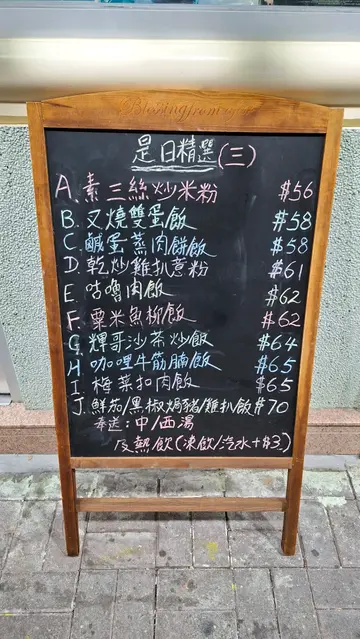 Blessing from
是日精選(三)
A. 素三絲炒米粉 $56
B. 叉燒雙蛋飯 $58
C. 鹹蛋蒸肉餅飯 $58
D. 乾炒雞扒意粉 $61
E. 咕嚕肉飯 $62
F. 粟米魚柳飯 $62
G. 輝哥沙茶炒飯 $64
H. 咖哩牛筋腩飯 $65
I. 梅菜扣肉飯 $65
J. 鮮茄/黑椒焗豬/雞扒飯 $70
奉送:中/西湯
反熱飲(凍飲/汽水+$3)